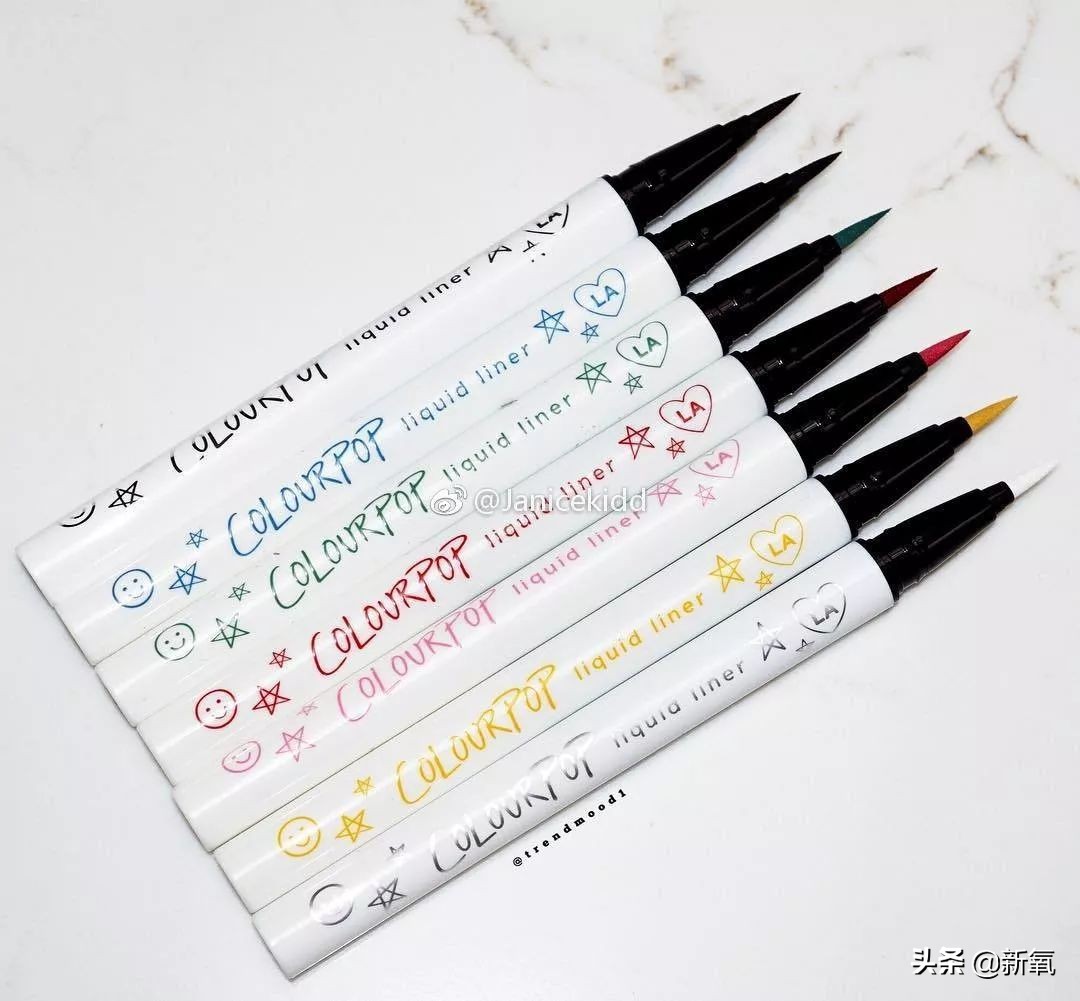 COLOURPOP liquid liner LA
COLOURPOP liquid liner LA
COLOURPOP liquid liner LA
COLOURPOP liquid liner LA
COLOURPOP liquid liner LA
COLOURPOP liquid liner LA
COLOURPOP liquid liner LA
@Janicekidd
@trendmood1
头条 @新氧